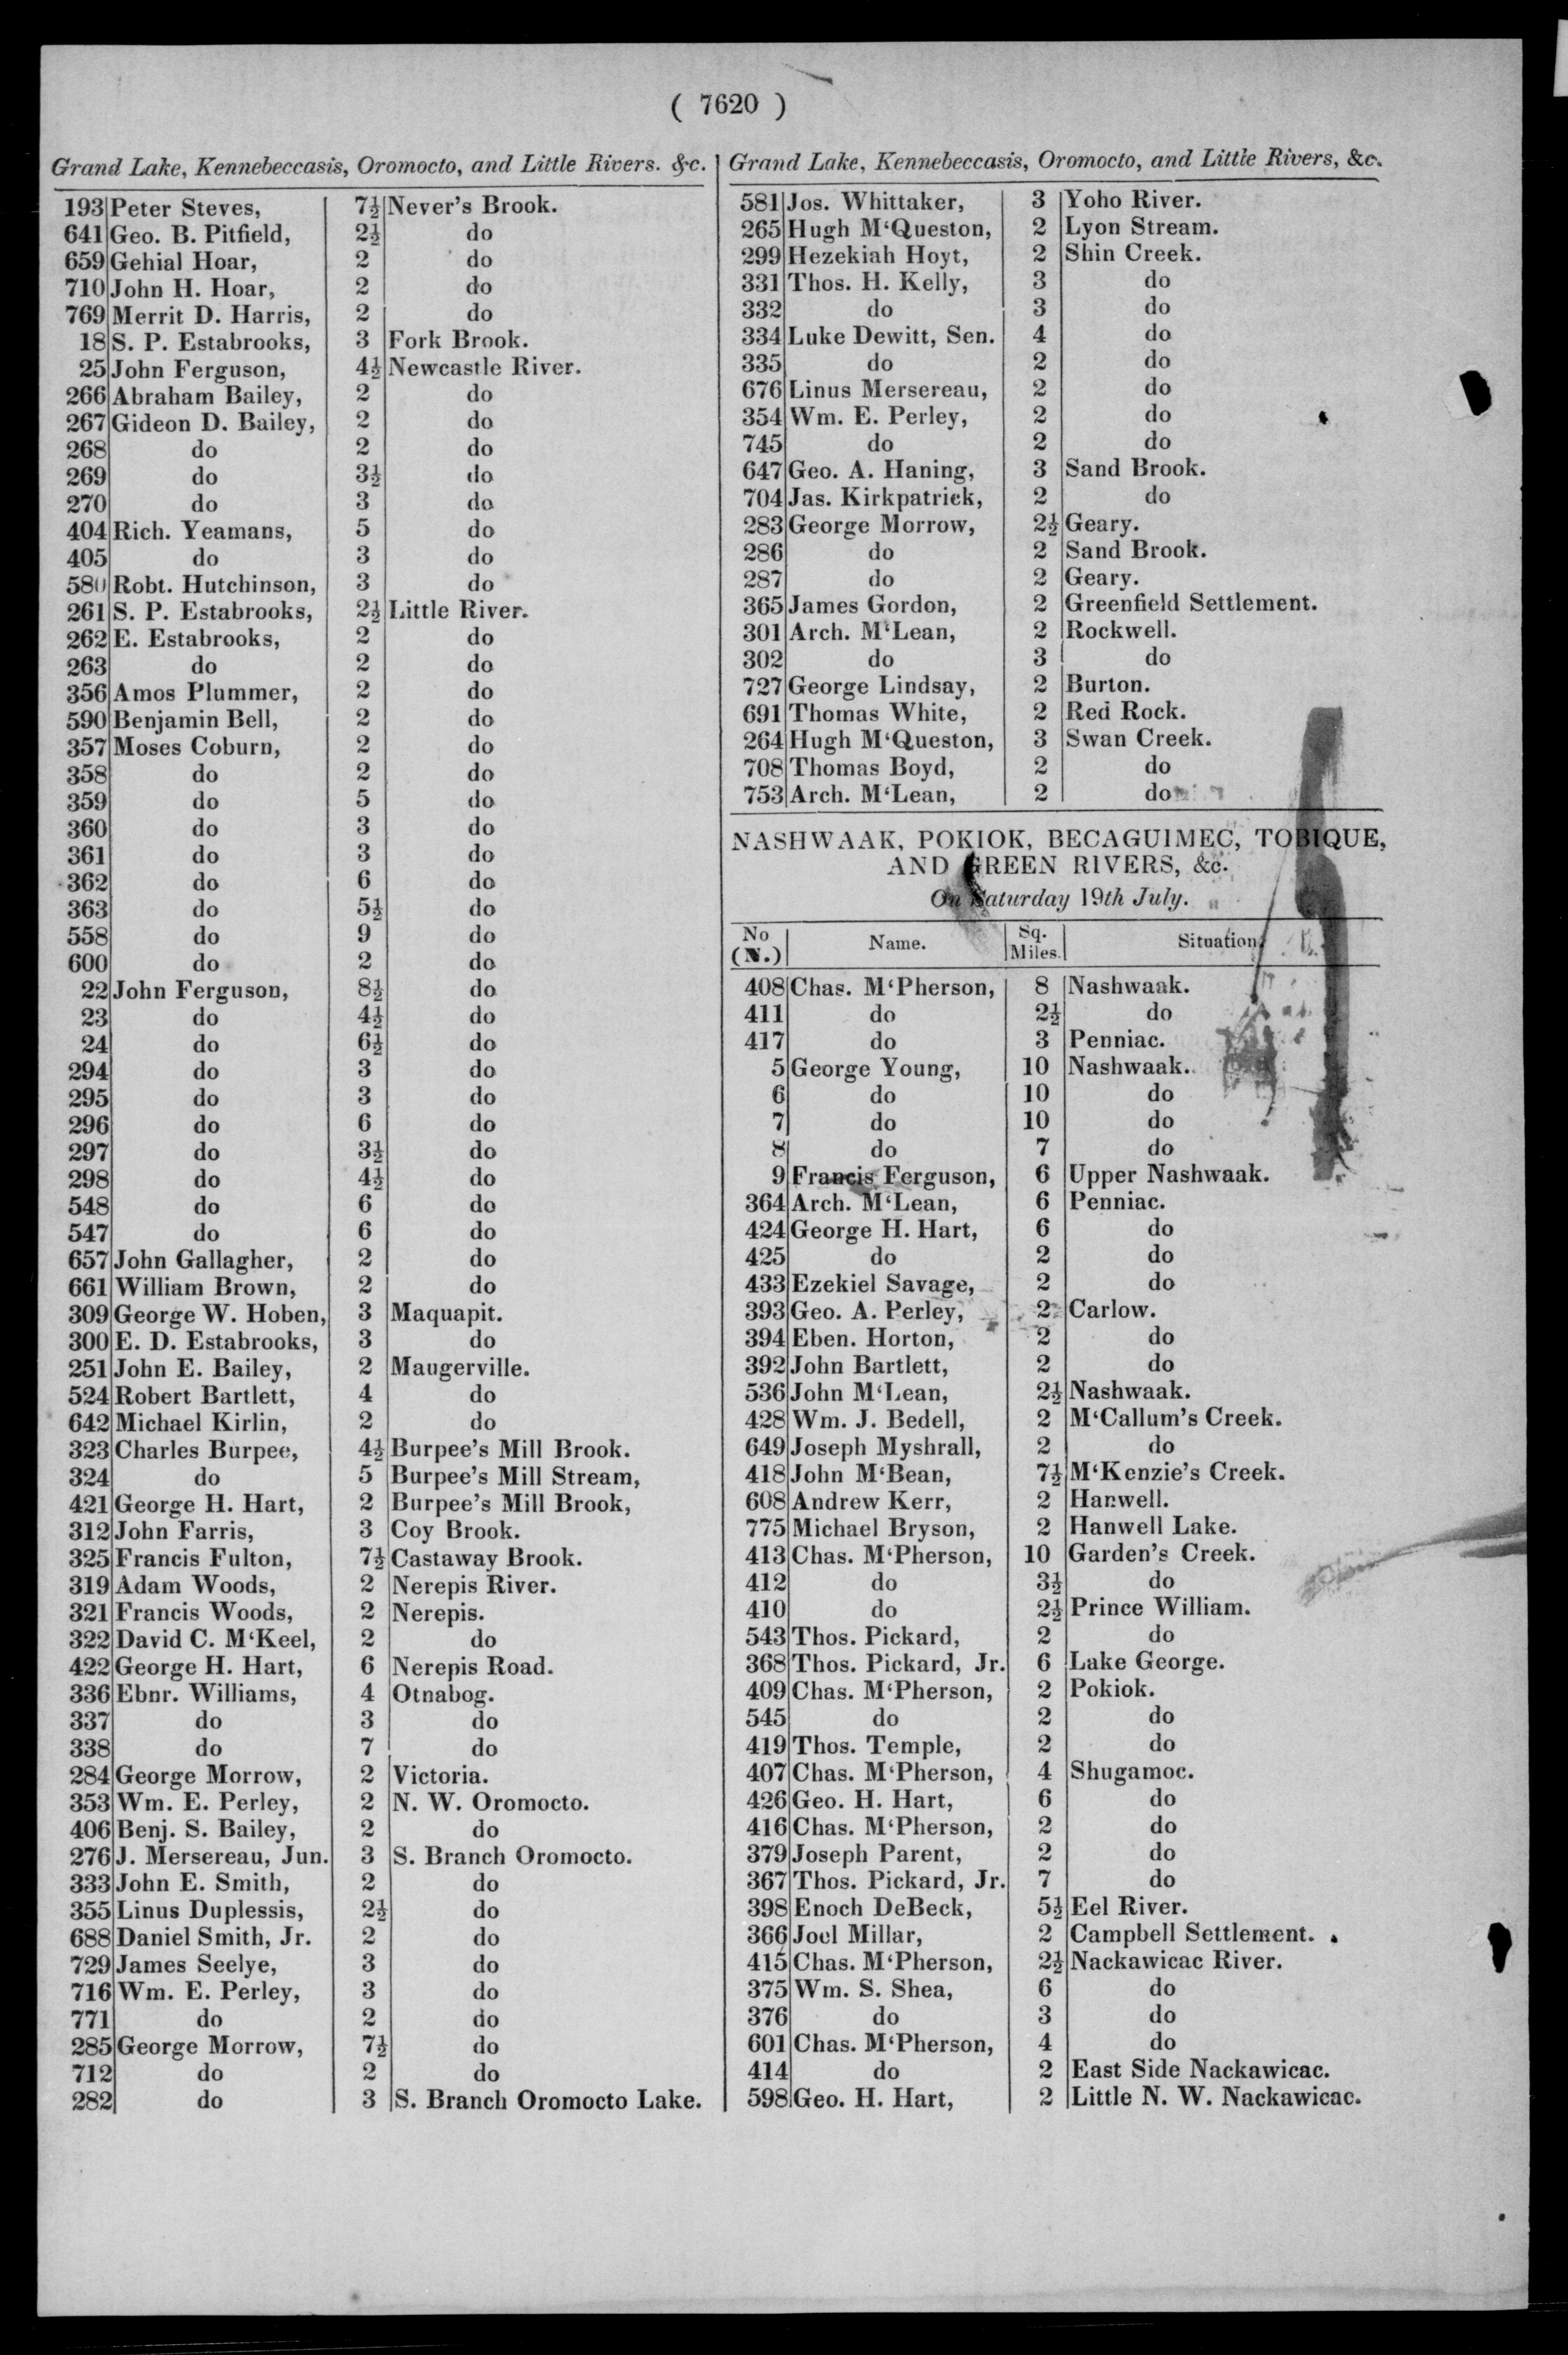 ( 7620 )
Grand Lake, Kennebeccasis, Oromocto, and Little Rivers. &c.
193 Peter Steves, 7½ Never's Brook.
641 Geo. B. Pitfield, 2½ do
659 Gehial Hoar, 2 do
710 John H. Hoar, 2 do
769 Merrit D. Harris, 2 do
18 S. P. Estabrooks, 3 Fork Brook.
25 John Ferguson, 4½ Newcastle River.
266 Abraham Bailey, 2 do
267 Gideon D. Bailey, 2 do
268 do 2 do
269 do 3½ do
270 do 3 do
404 Rich. Yeamans, 5 do
405 do 3 do
580 Robt. Hutchinson, 3 do
261 S. P. Estabrooks, 2½ Little River.
262 E. Estabrooks, 2 do
263 do 2 do
356 Amos Plummer, 2 do
590 Benjamin Bell, 2 do
357 Moses Coburn, 2 do
358 do 2 do
359 do 5 do
360 do 3 do
361 do 3 do
362 do 6 do
363 do 5½ do
558 do 9 do
600 do 2 do
22 John Ferguson, 8½ do
23 do 4½ do
24 do 6½ do
294 do 3 do
295 do 3 do
296 do 6 do
297 do 3½ do
298 do 4½ do
548 do 6 do
547 do 6 do
657 John Gallagher, 2 do
661 William Brown, 2 do
309 George W. Hoben, 3 Maquapit.
300 E. D. Estabrooks, 3 do
251 John E. Bailey, 2 Maugerville.
524 Robert Bartlett, 4 do
642 Michael Kirlin, 2 do
323 Charles Burpee, 4½ Burpee's Mill Brook.
324 do 5 Burpee's Mill Stream,
421 George H. Hart, 2 Burpee's Mill Brook,
312 John Farris, 3 Coy Brook.
325 Francis Fulton, 7½ Castaway Brook.
319 Adam Woods, 2 Nerepis River.
321 Francis Woods, 2 Nerepis.
322 David C. M'Keel, 2 do
422 George H. Hart, 6 Nerepis Road.
336 Ebnr. Williams, 4 Otnabog.
337 do 3 do
338 do 7 do
284 George Morrow, 2 Victoria.
353 Wm. E. Perley, 2 N. W. Oromocto.
406 Benj. S. Bailey, 2 do
276 J. Mersereau, Jun. 3 S. Branch Oromocto.
333 John E. Smith, 2 do
355 Linus Duplessis, 2½ do
688 Daniel Smith, Jr. 2 do
729 James Seelye, 3 do
716 Wm. E. Perley, 3 do
771 do 2 do
285 George Morrow, 7½ do
712 do 2 do
282 do 3 S. Branch Oromocto Lake.
Grand Lake, Kennebeccasis, Oromocto, and Little Rivers, &c.
581 Jos. Whittaker, 3 Yoho River.
265 Hugh M'Queston, 2 Lyon Stream.
299 Hezekiah Hoyt, 2 Shin Creek.
331 Thos. H. Kelly, 3 do
332 do 3 do
334 Luke Dewitt, Sen. 4 do
335 do 2 do
676 Linus Mersereau, 2 do
354 Wm. E. Perley, 2 do
745 do 2 do
647 Geo. A. Haning, 3 Sand Brook.
704 Jas. Kirkpatrick, 2 do
283 George Morrow, 2½ Geary.
286 do 2 Sand Brook.
287 do 2 Geary.
365 James Gordon, 2 Greenfield Settlement.
301 Arch. M'Lean, 2 Rockwell.
302 do 3 do
727 George Lindsay, 2 Burton.
691 Thomas White, 2 Red Rock.
264 Hugh M'Queston, 3 Swan Creek.
708 Thomas Boyd, 2 do
753 Arch. M'Lean, 2 do
NASHWAAK, POKIOK, BECAGUIMEC, TOBIQUE,
AND GREEN RIVERS, &c.
On Saturday 19th July.
No (N.) Name. Sq. Miles. Situation.
408 Chas. M'Pherson, 8 Nashwaak.
411 do 2½ do
417 do 3 Penniac.
5 George Young, 10 Nashwaak.
6 do 10 do
7 do 10 do
8 do 7 do
9 Francis Ferguson, 6 Upper Nashwaak.
364 Arch. M'Lean, 6 Penniac.
424 George H. Hart, 6 do
425 do 2 do
433 Ezekiel Savage, 2 do
393 Geo. A. Perley, 2 Carlow.
394 Eben. Horton, 2 do
392 John Bartlett, 2 do
536 John M'Lean, 2½ Nashwaak.
428 Wm. J. Bedell, 2 M'Callum's Creek.
649 Joseph Myshrall, 2 do
418 John M'Bean, 7½ M'Kenzie's Creek.
608 Andrew Kerr, 2 Hanwell.
775 Michael Bryson, 2 Hanwell Lake.
413 Chas. M'Pherson, 10 Garden's Creek.
412 do 3½ do
410 do 2½ Prince William.
543 Thos. Pickard, 2 do
368 Thos. Pickard, Jr. 6 Lake George.
409 Chas. M'Pherson, 2 Pokiok.
545 do 2 do
419 Thos. Temple, 2 do
407 Chas. M'Pherson, 4 Shugamoc.
426 Geo. H. Hart, 6 do
416 Chas. M'Pherson, 2 do
379 Joseph Parent, 2 do
367 Thos. Pickard, Jr. 7 do
398 Enoch DeBeck, 5½ Eel River.
366 Joel Millar, 2 Campbell Settlement.
415 Chas. M'Pherson, 2½ Nackawicac River.
375 Wm. S. Shea, 6 do
376 do 3 do
601 Chas. M'Pherson, 4 do
414 do 2 East Side Nackawicac.
598 Geo. H. Hart, 2 Little N. W. Nackawicac.